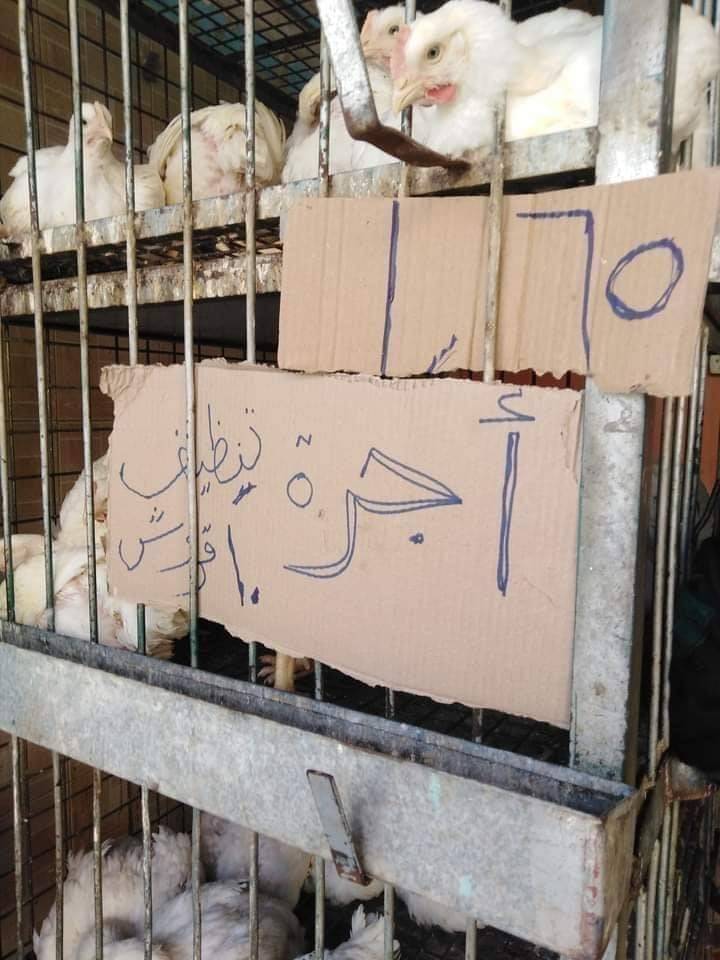 ١,٦٥
أجرة تنظيف
١٠ قروش